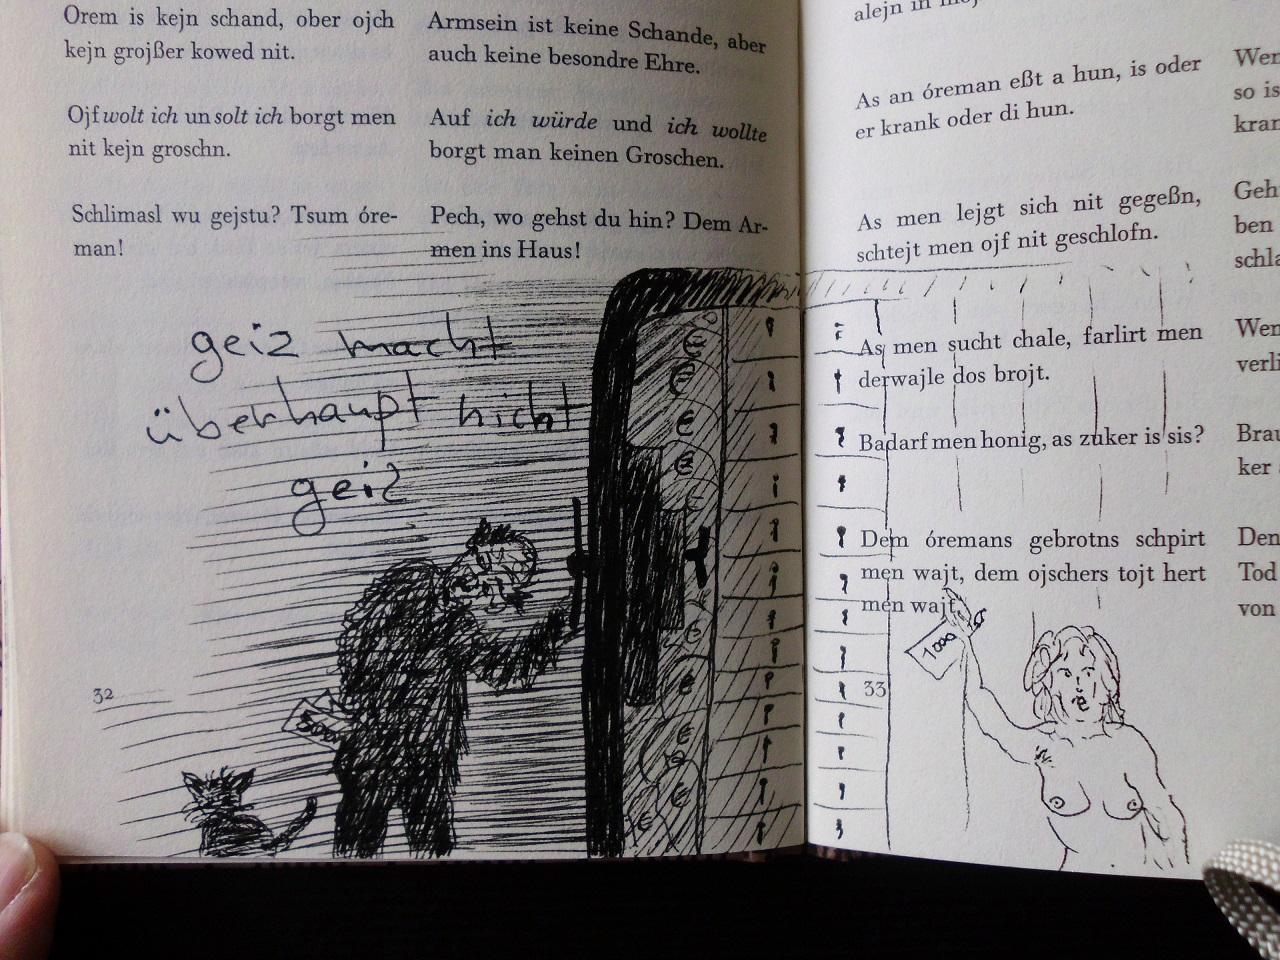 Orem is kejn schand, ober ojch
kejn grojßer kowed nit.
Ojf wolt ich un solt ich borgt men
nit kejn groschn.
Schlimasl wu gejstu? Tsum óre-
man!
Armsein ist keine Schande, aber
auch keine besondre Ehre.
Auf ich würde und ich wollte
borgt man keinen Groschen.
Pech, wo gehst du hin? Dem Ar-
men ins Haus!
geiz macht
überhaupt nicht
geiz
500
32
alejn in
As an óreman eßt a hun, is oder
er krank oder di hun.
As men lejgt sich nit gegeßn,
schtejt men ojf nit geschlofn.
As men sucht chale, farlirt men
derwajle dos brojt.
Badarf men honig, as zuker is sis?
Dem óremans gebrotns schpirt
men wajt, dem ojschers tojt hert
men wajt
1000
33
Wen
so is
kran
Geh
ben
schla
Wen
verli
Brau
ker
Den
Tod
von